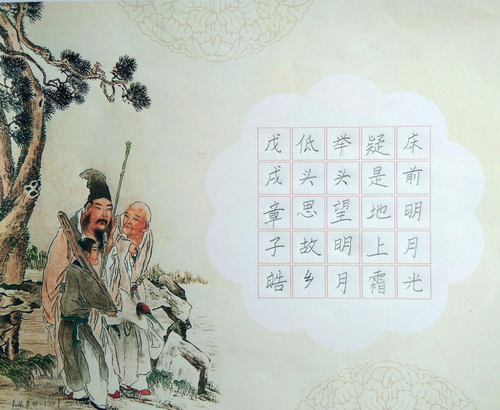 床前明月光
疑是地上霜
举头望明月
低头思故乡
戊戌章子皓